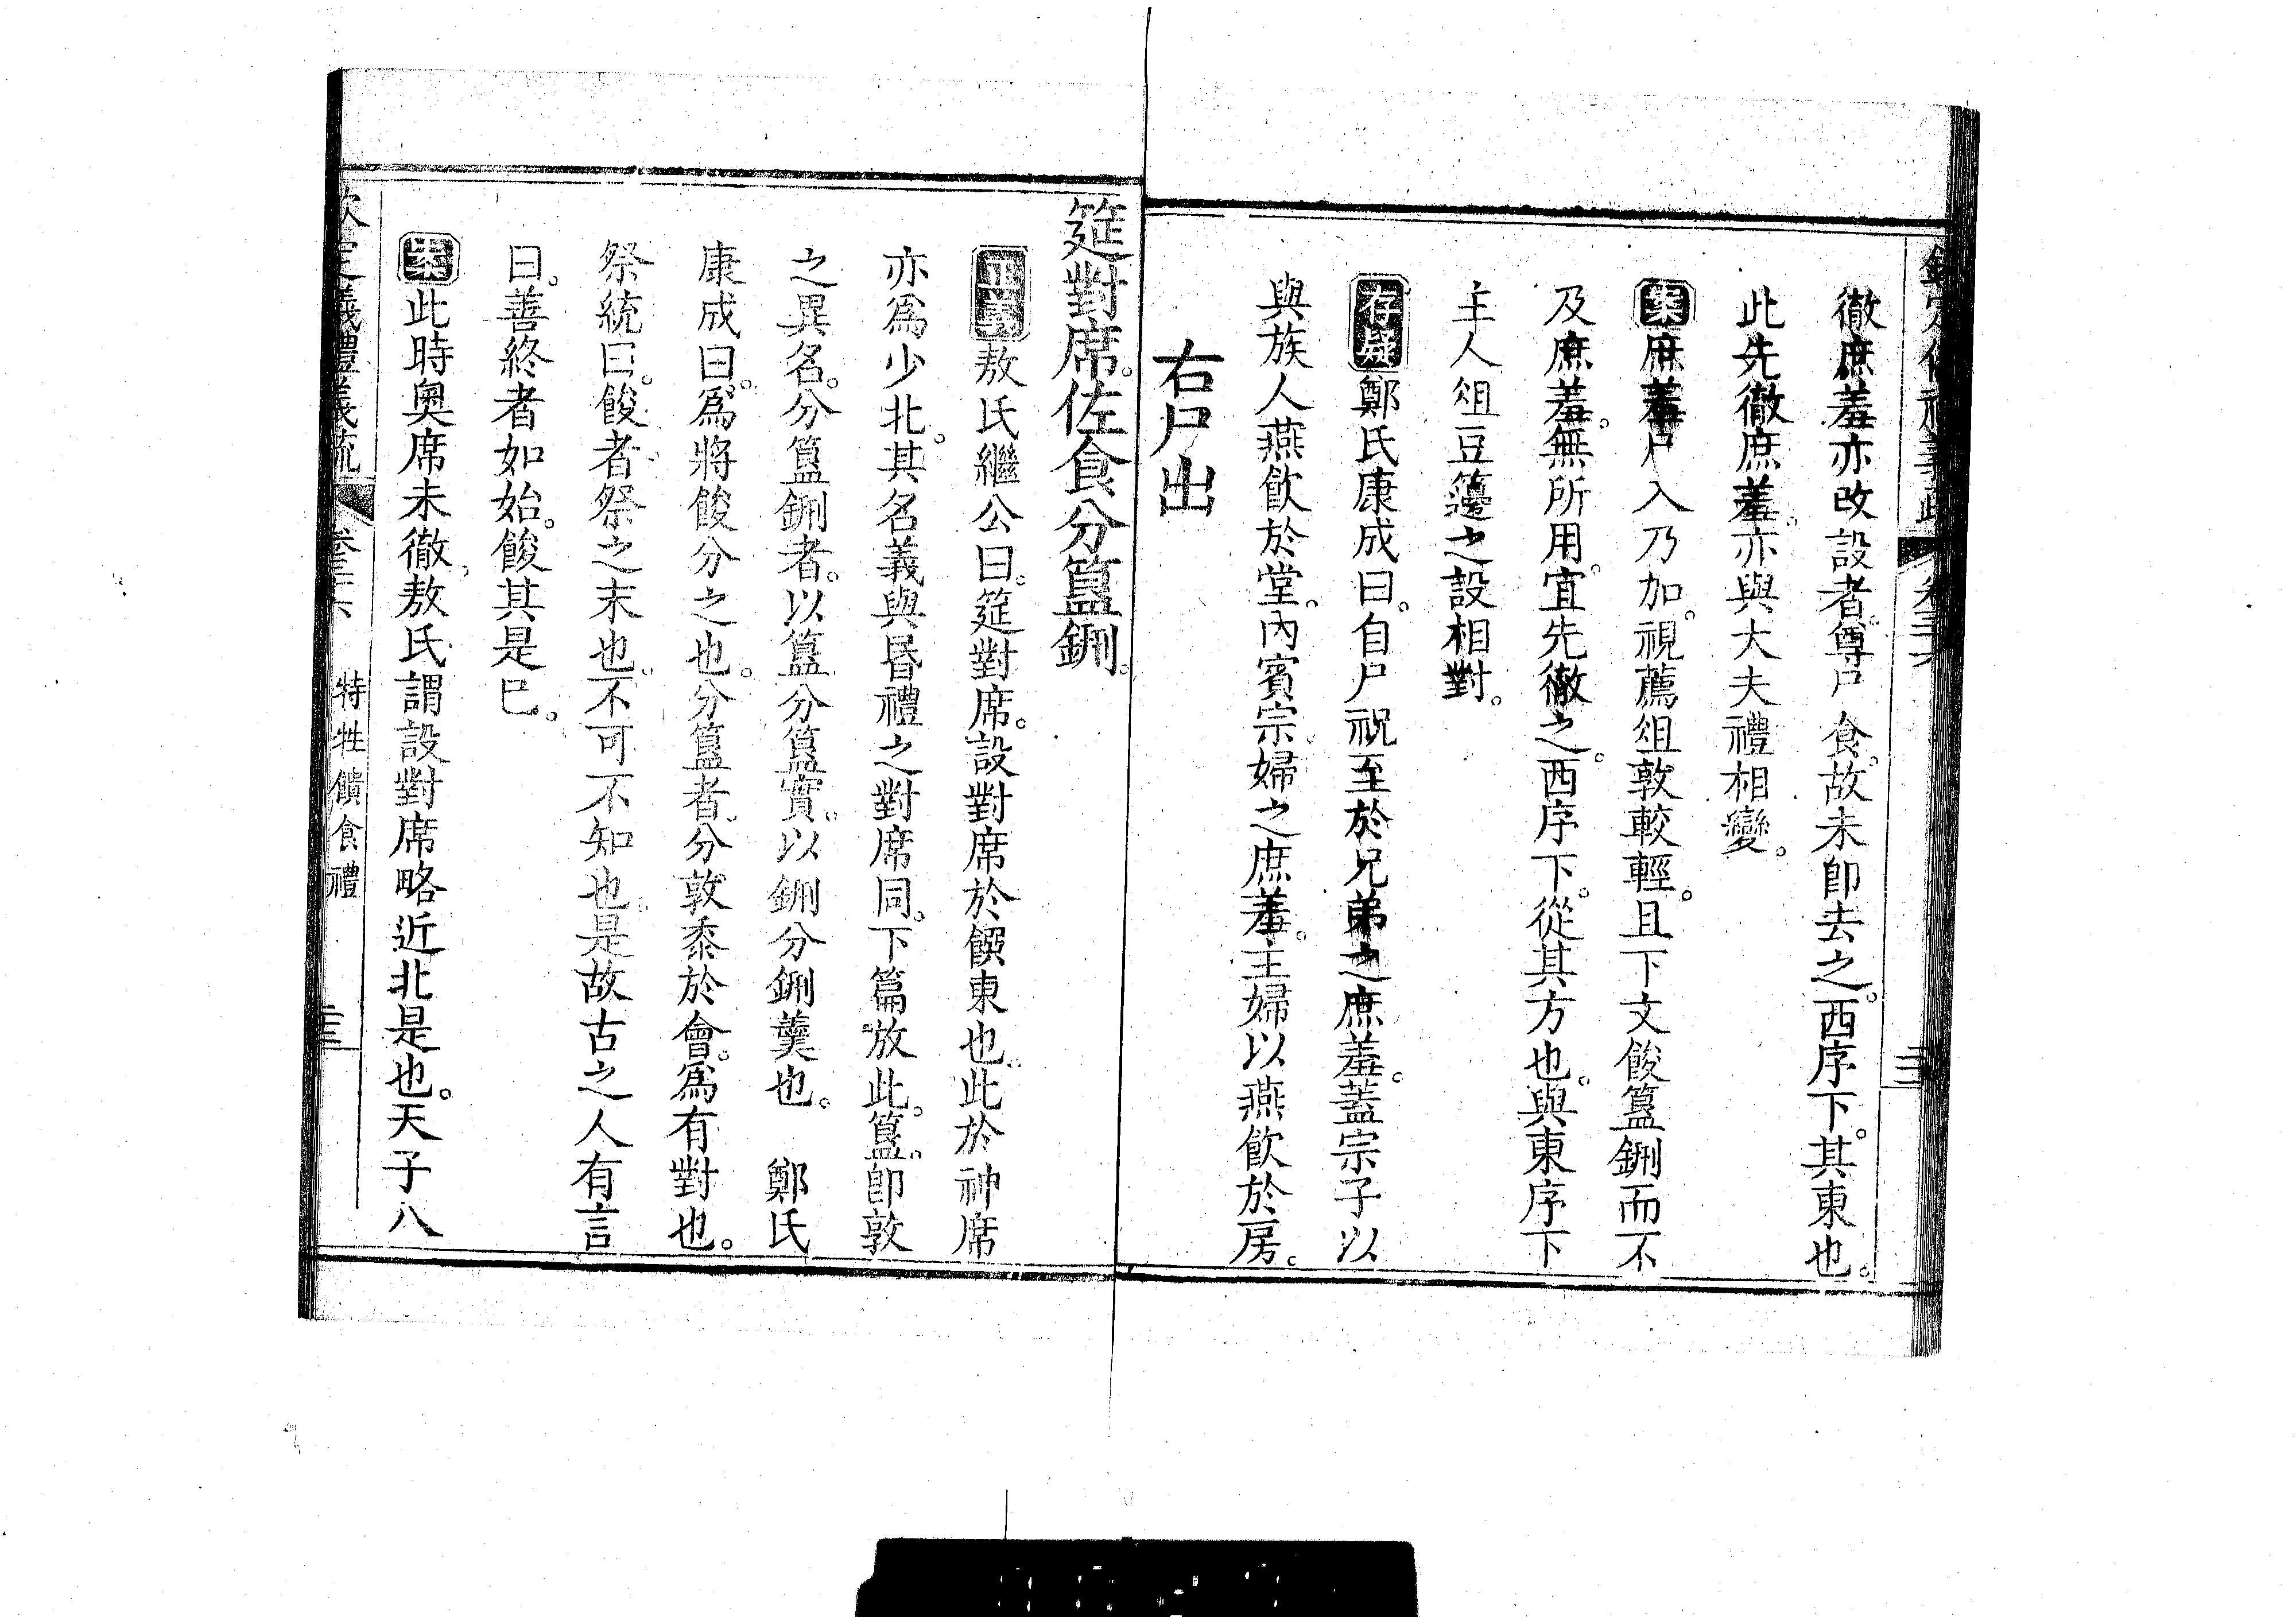 徹庶羞亦改設者尊尸食故未卽去之西序下其東也
此先徹庶羞亦與大夫禮相變
案庶羞尸入乃加視薦俎敦較輕且下文餕簋鉶而不
及庶羞無所用宜先徹之西序下從其方也與東序下
主人俎豆籩之設相對
存疑鄭氏康成曰自尸祝至於兄弟之庶羞蓋宗子以
與族人燕飮於堂內賓宗婦之庶羞主婦以燕飮於房
右尸出
筵對席佐食分簋鉶
正義敖氏繼公曰筵對席設對席於饌東也此於神席
亦爲少北其名義與昏禮之對席同下篇放此簋卽敦
之異名分簋鉶者以簋分簋實以鉶分鉶羹也　鄭氏
康成曰爲將餕分之也分簋者分敦黍於會爲有對也
祭統曰餕者祭之末也不可不知也是故古之人有言
曰善終者如始餕其是已
案此時奧席未徹敖氏謂設對席略近北是也天子八
欽定儀禮義疏　卷三十六　特牲饋食禮